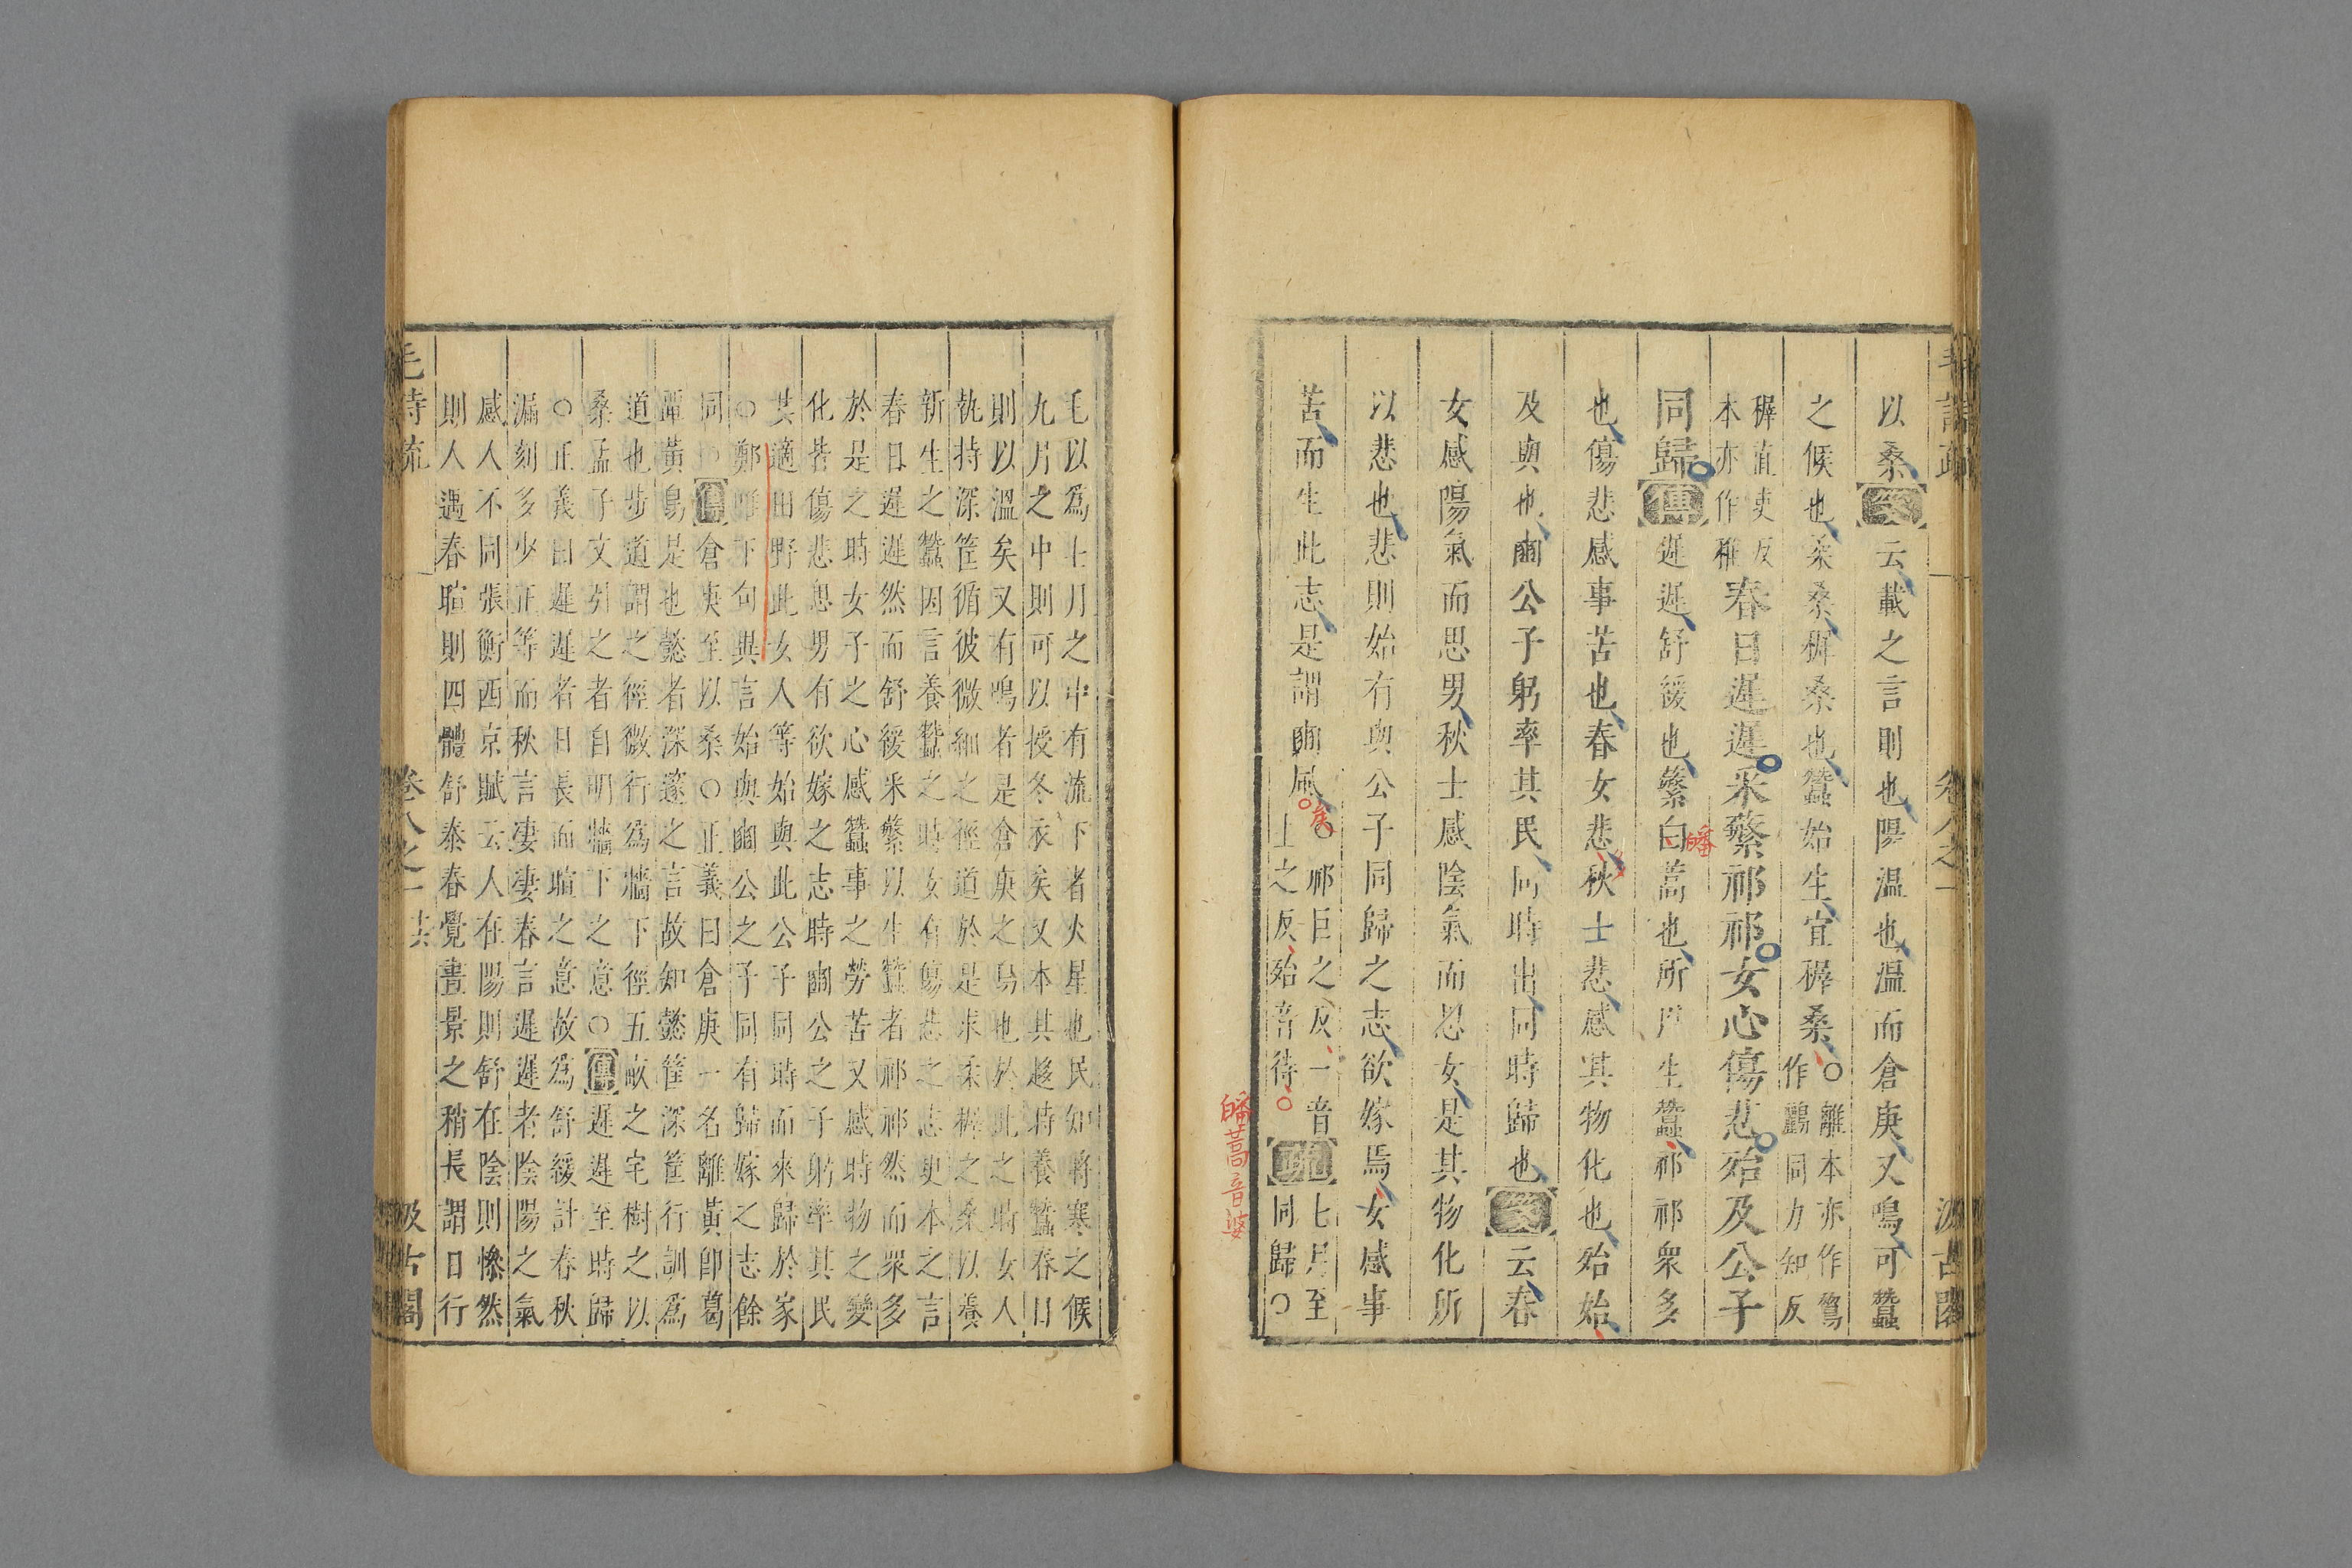 毛詩疏 卷八之一 汲古閣
以桑箋云載之言則也陽温也温而倉庚又鳴可蠶
之候也柔桑穉桑也蠶始生宜穉桑○離本亦作鶩
作鸝同力知反
穉直吏反
本亦作稚
春日遲遲采蘩祁祁女心傷悲殆及公子
同歸傳遲遲舒緩也蘩白蒿也所以生蠶祁祁衆多
皤
也傷悲感事苦也春女悲秋士悲感其物化也殆始
及與也豳公子躬率其民同時出同時歸也箋云春
女感陽氣而思男秋士感陰氣而思女是其物化所
以悲也悲則始有與公子同歸之志欲嫁焉女感事
苦而生此志是謂豳風○祁巨之反一音
上之反殆音待○
疏七月至
同歸○
皤蒿音婆
毛以爲七月之中有流下者火星也民知將寒之候
九月之中則可以授冬衣矣又本其趍時養蠶春日
則以溫矣又有鳴者是倉庚之鳥也於此之時女人
執持深筐循彼微細之徑道於是求柔穉之桑以養
新生之蠶因言養蠶之時女有傷悲之志更本之言
春日遲遲然而舒緩采蘩以生蠶者祁祁然而衆多
於是之時女子之心感蠶事之勞苦又感時物之變
化皆傷悲思男有欲嫁之志時豳公之子躬率其民
共適田野此女人等始與此公子同時而來歸於家
○鄭唯下句與言始與豳公之子同有歸嫁之志餘
同○傳倉庚至以桑○正義曰倉庚一名離黃即葛
覃黃鳥是也懿者深邃之言故知懿筐深筐行訓爲
道也步道謂之徑微行爲牆下徑五畝之宅樹之以
桑孟子文引之者自明牆下之意○傳遲遲至時歸
○正義曰遲遲者日長而暄之意故爲舒緩計春秋
漏刻多少正等而秋言凄凄春言遲遲者陰陽之氣
感人不同張衡西京賦云人在陽則舒在陰則慘然
則人遇春暄則四體舒泰春覺晝景之稍長謂日行
毛詩疏 卷八之一 十六 汲古閣